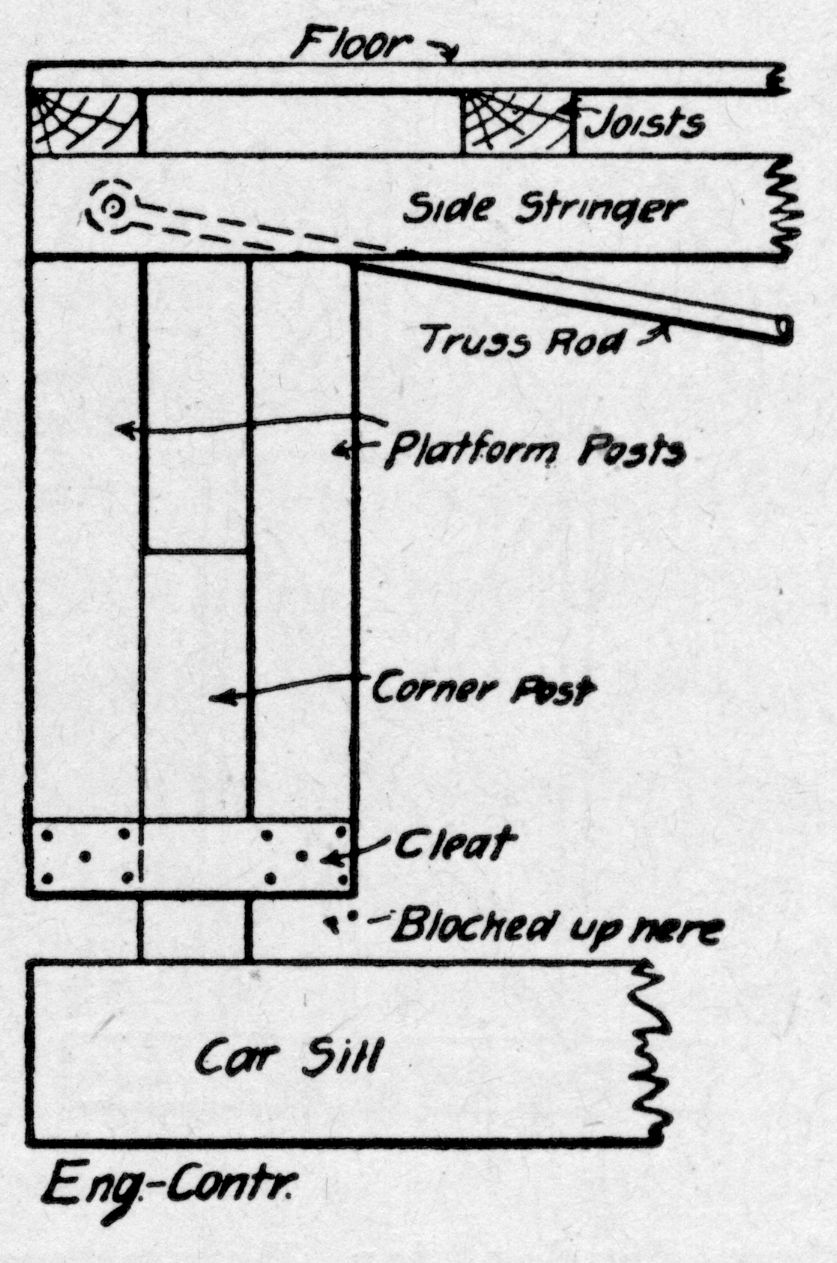 Floor
Joists
Side Stringer
Truss Rod
Platform Posts
Corner Post
Cleat
Blocked up here
Car Sill
Eng.-Contr.